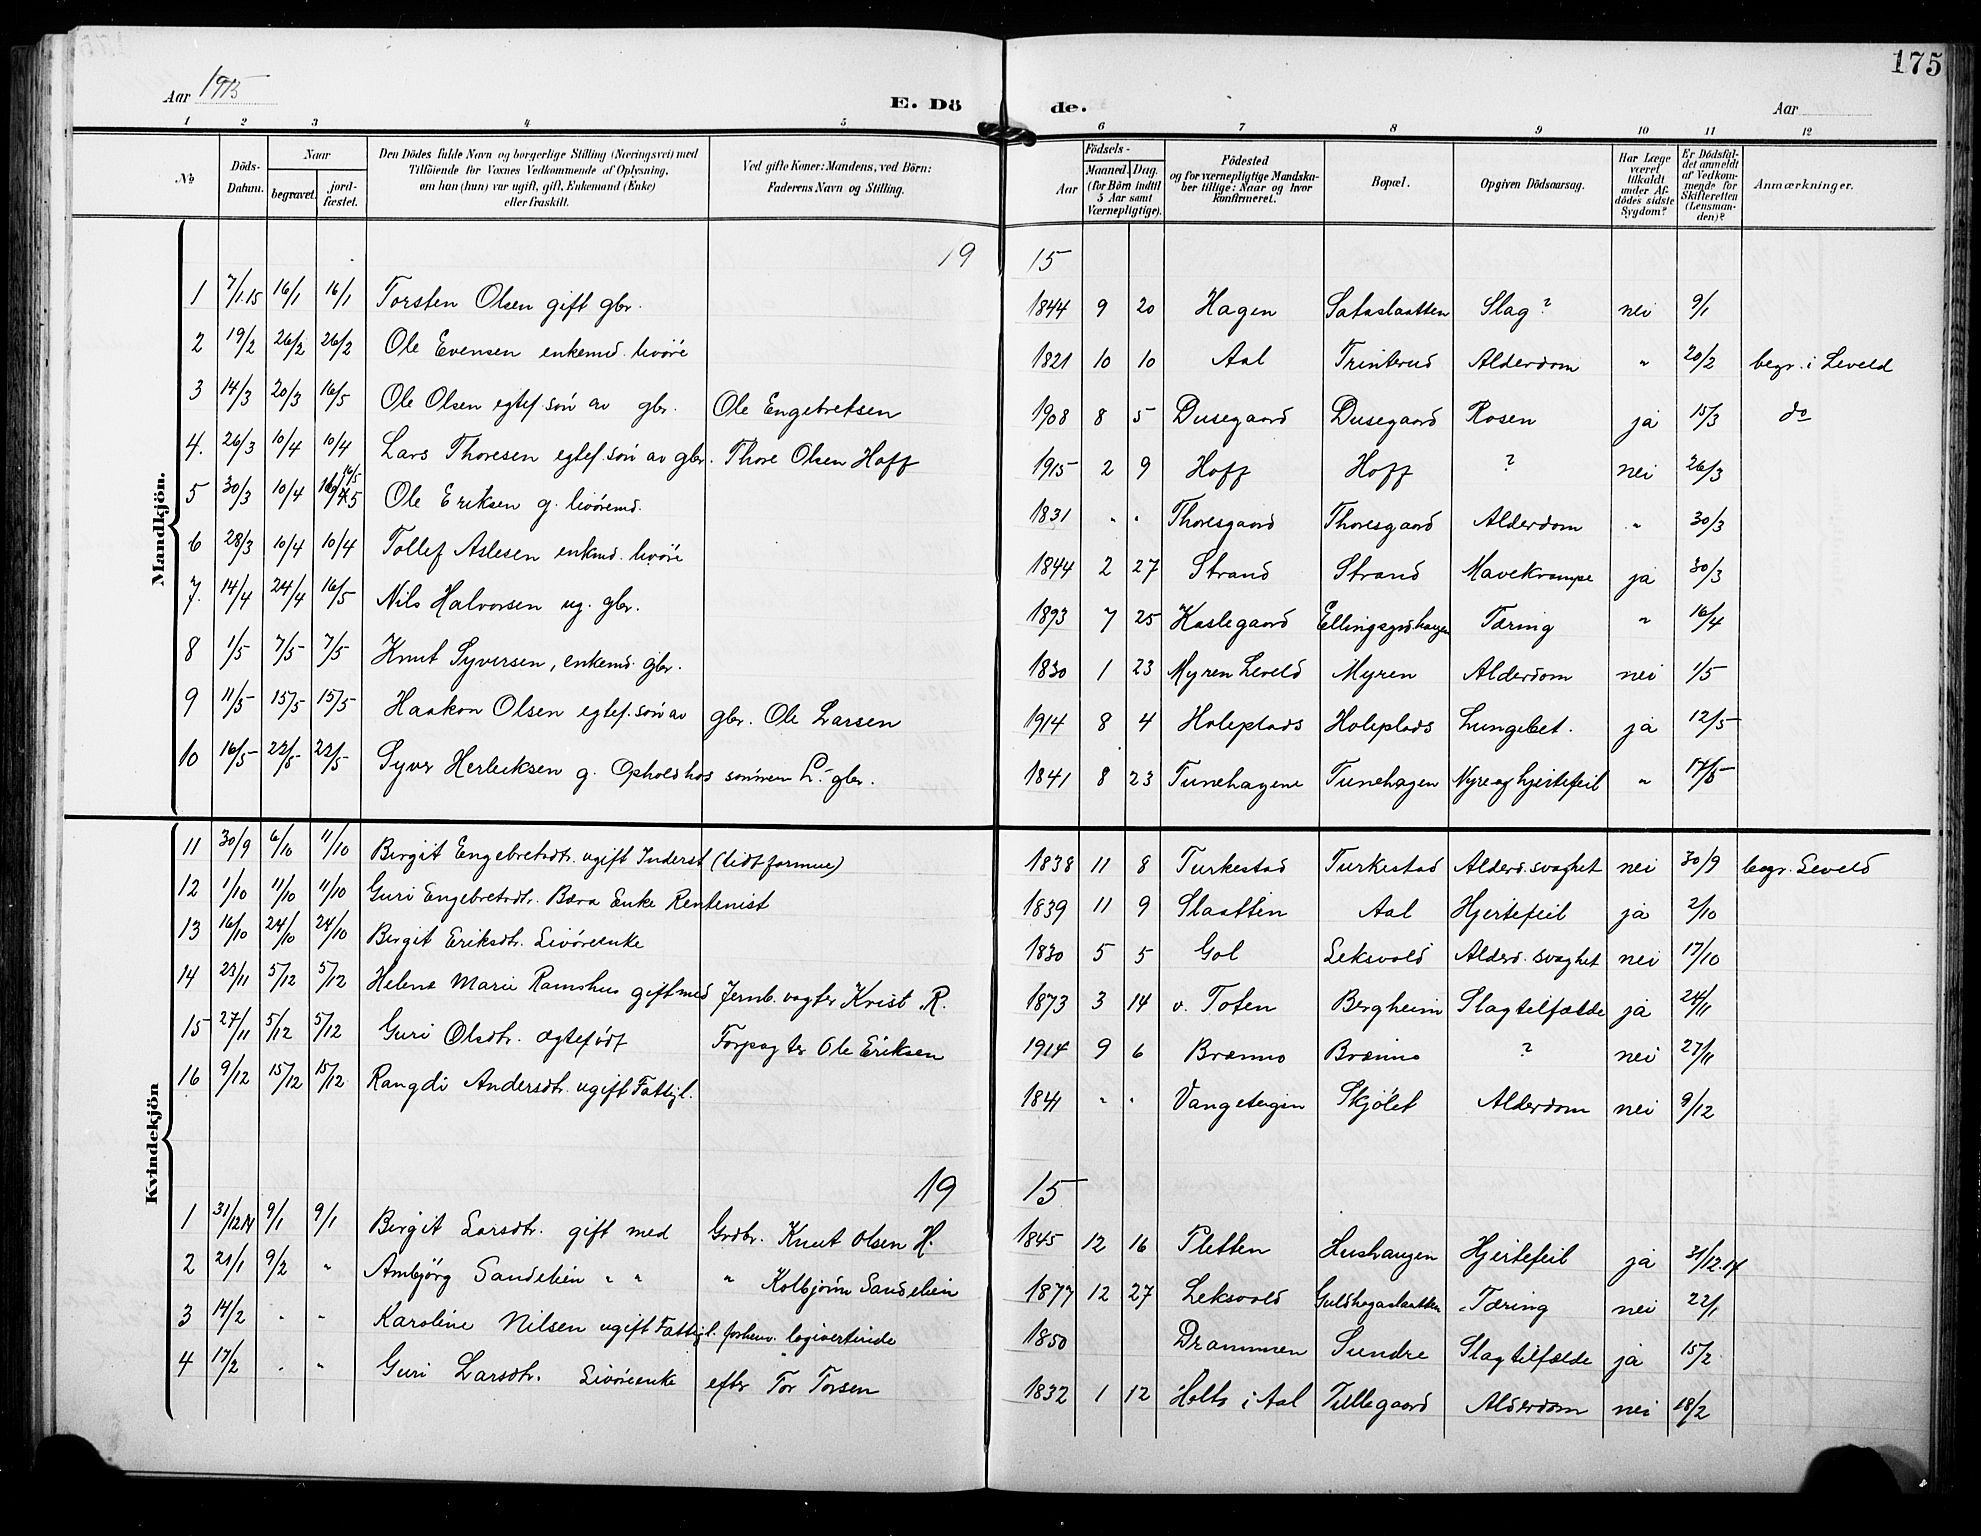 175
Aar 1915
E. Dö de.
Aar
1 2 3 4 5 6 7 8 9 10 11 12
№
Döds-Datum.
Naar
begravet.
jord-fæstet.
Den Dödes fulde Navn og borgerlige Stilling (Næringsvei) med
Tilföiende for Voxnes Vedkommende af Oplysning,
om han (hun) var ugift, gift, Enkemand (Enke)
eller fraskilt.
Ved gifte Koner: Mandens, ved Börn:
Faderens Navn og Stilling.
Födsels-
Aar
Maaned. Dag.
(for Börn indtil
5 Aar samt
Værnepligtige).
Födested
og for værnepligtige Mandska-
ber tillige: Naar og hvor
konfirmeret.
Bopæl.
Opgiven Dödsaarsag.
Har Læge
været
tilkaldt
under Af-
dödes sidste
Sygdom?
Er Dödsfal-
det anmeldt
af Vedkom-
mende for
Skifteretten
(Lensman-
den)?
Anmærkninger.
Mandkjön.
19 15
1 7/1.15 16/1 16/1 Torsten Olsen gift gbr. 1844 9 20 Hagen Sataslaatten Slag? nei 9/1
2 19/2 26/2 26/2 Ole Evensen enkemd. livöre 1821 10 10 Aal Trinterud Alderdom " 20/2 begr. i Leveld
3 14/3 20/3 16/5 Ole Olsen egtef. sön av gbr. Ole Engebretsen 1908 8 5 Dusegaard Dusegaard Rosen ja 15/3 do
4. 26/3 10/4 10/4 Lars Thoresen egtef. sön av gbr. Thore Olsen Hoff 1915 2 9 Hoff Hoff ? nei 26/3
5 30/3 10/4 16/5 Ole Eriksen g. livöremd. 1831 " " Thoresgaard Thoresgaard Alderdom " 30/3
6 28/3 10/4 10/4 Tollef Aslesen enkmd. livöre 1844 2 27 Strand Strand Mavekrampe ja 30/3
7. 14/4 24/4 16/5 Nils Halvorsen ug. gbr. 1893 7 25 Kaslegaard Ellingsgrdhaugen Tæring " 16/4
8 1/5 7/5 7/5 Knut Syversen, enkemd. gbr. 1830 1 23 Myren Leveld Myren Alderdom nei 1/5
9 11/5 15/5 15/5 Haakon Olsen egtef. sön av gbr. Ole Larsen 1914 8 4 Holeplads Holeplads Lungebet. ja 12/5
10 16/5 22/5 22/5 Syver Herleiksen g. Ophold hos sönnen L. gbr. 1841 8 23 Tunehagene Tunehagen Nyre og hjertefeil " 17/5
Kvindekjön
11 30/9 6/10 11/10 Birgit Engebretsdtr. ugift Inderst (lidt formue) 1838 11 8 Turkestad Turkestad Alderd. svaghet nei 30/9 begr. Leveld
12 1/10 11/10 11/10 Guri Engebretsdtr. Bæra Enke Rentenist 1839 11 9 Slaatten Aal Hjertefeil ja 2/10
13 16/10 24/10 24/10 Birgit Eriksdtr. Livöreenke 1830 5 5 Gol Leksvold Alderd. svaghet nei 17/10
14 23/11 5/12 5/12 Helene Marie Ramshus gift med Jernb. vogter Krist. R. 1873 3 14 v. Toten Bergheim Slagtilfælde ja 24/11
15 27/11 5/12 5/12 Guri Olsdtr. ægtefödt Forpagter Ole Eriksen 1914 9 6 Brænno Brænno ? nei 27/11
16 9/12 15/12 15/12 Rangdi Andersdtr. ugift Fattigl. 1841 " " Vangeteigen Skjölet Alderdom nei 9/12
19 15
1 31/12 14 9/1 9/1 Birgit Larsdtr. gift med Grdbr. Knut Olsen H. 1845 12 16 Pletten Hushaugen Hjertefeil ja 31/12.14
2 21/1 9/2 " Ambjörg Sandelien " " " Kolbjörn Sandelien 1877 12 27 Leksvold Guldhagaslaatten Tæring nei 22/1
3 14/2 " " Karoline Nilsen ugift Fattigl. forhenv. logivertinde 1850 Drammen Sundre Slagtilfælde ja 15/2
4 17/2 " " Guri Larsdtr. Livöreenke efter Tor Torsen 1832 1 12 Holto i Aal Tillegaard Alderdom nei 18/2